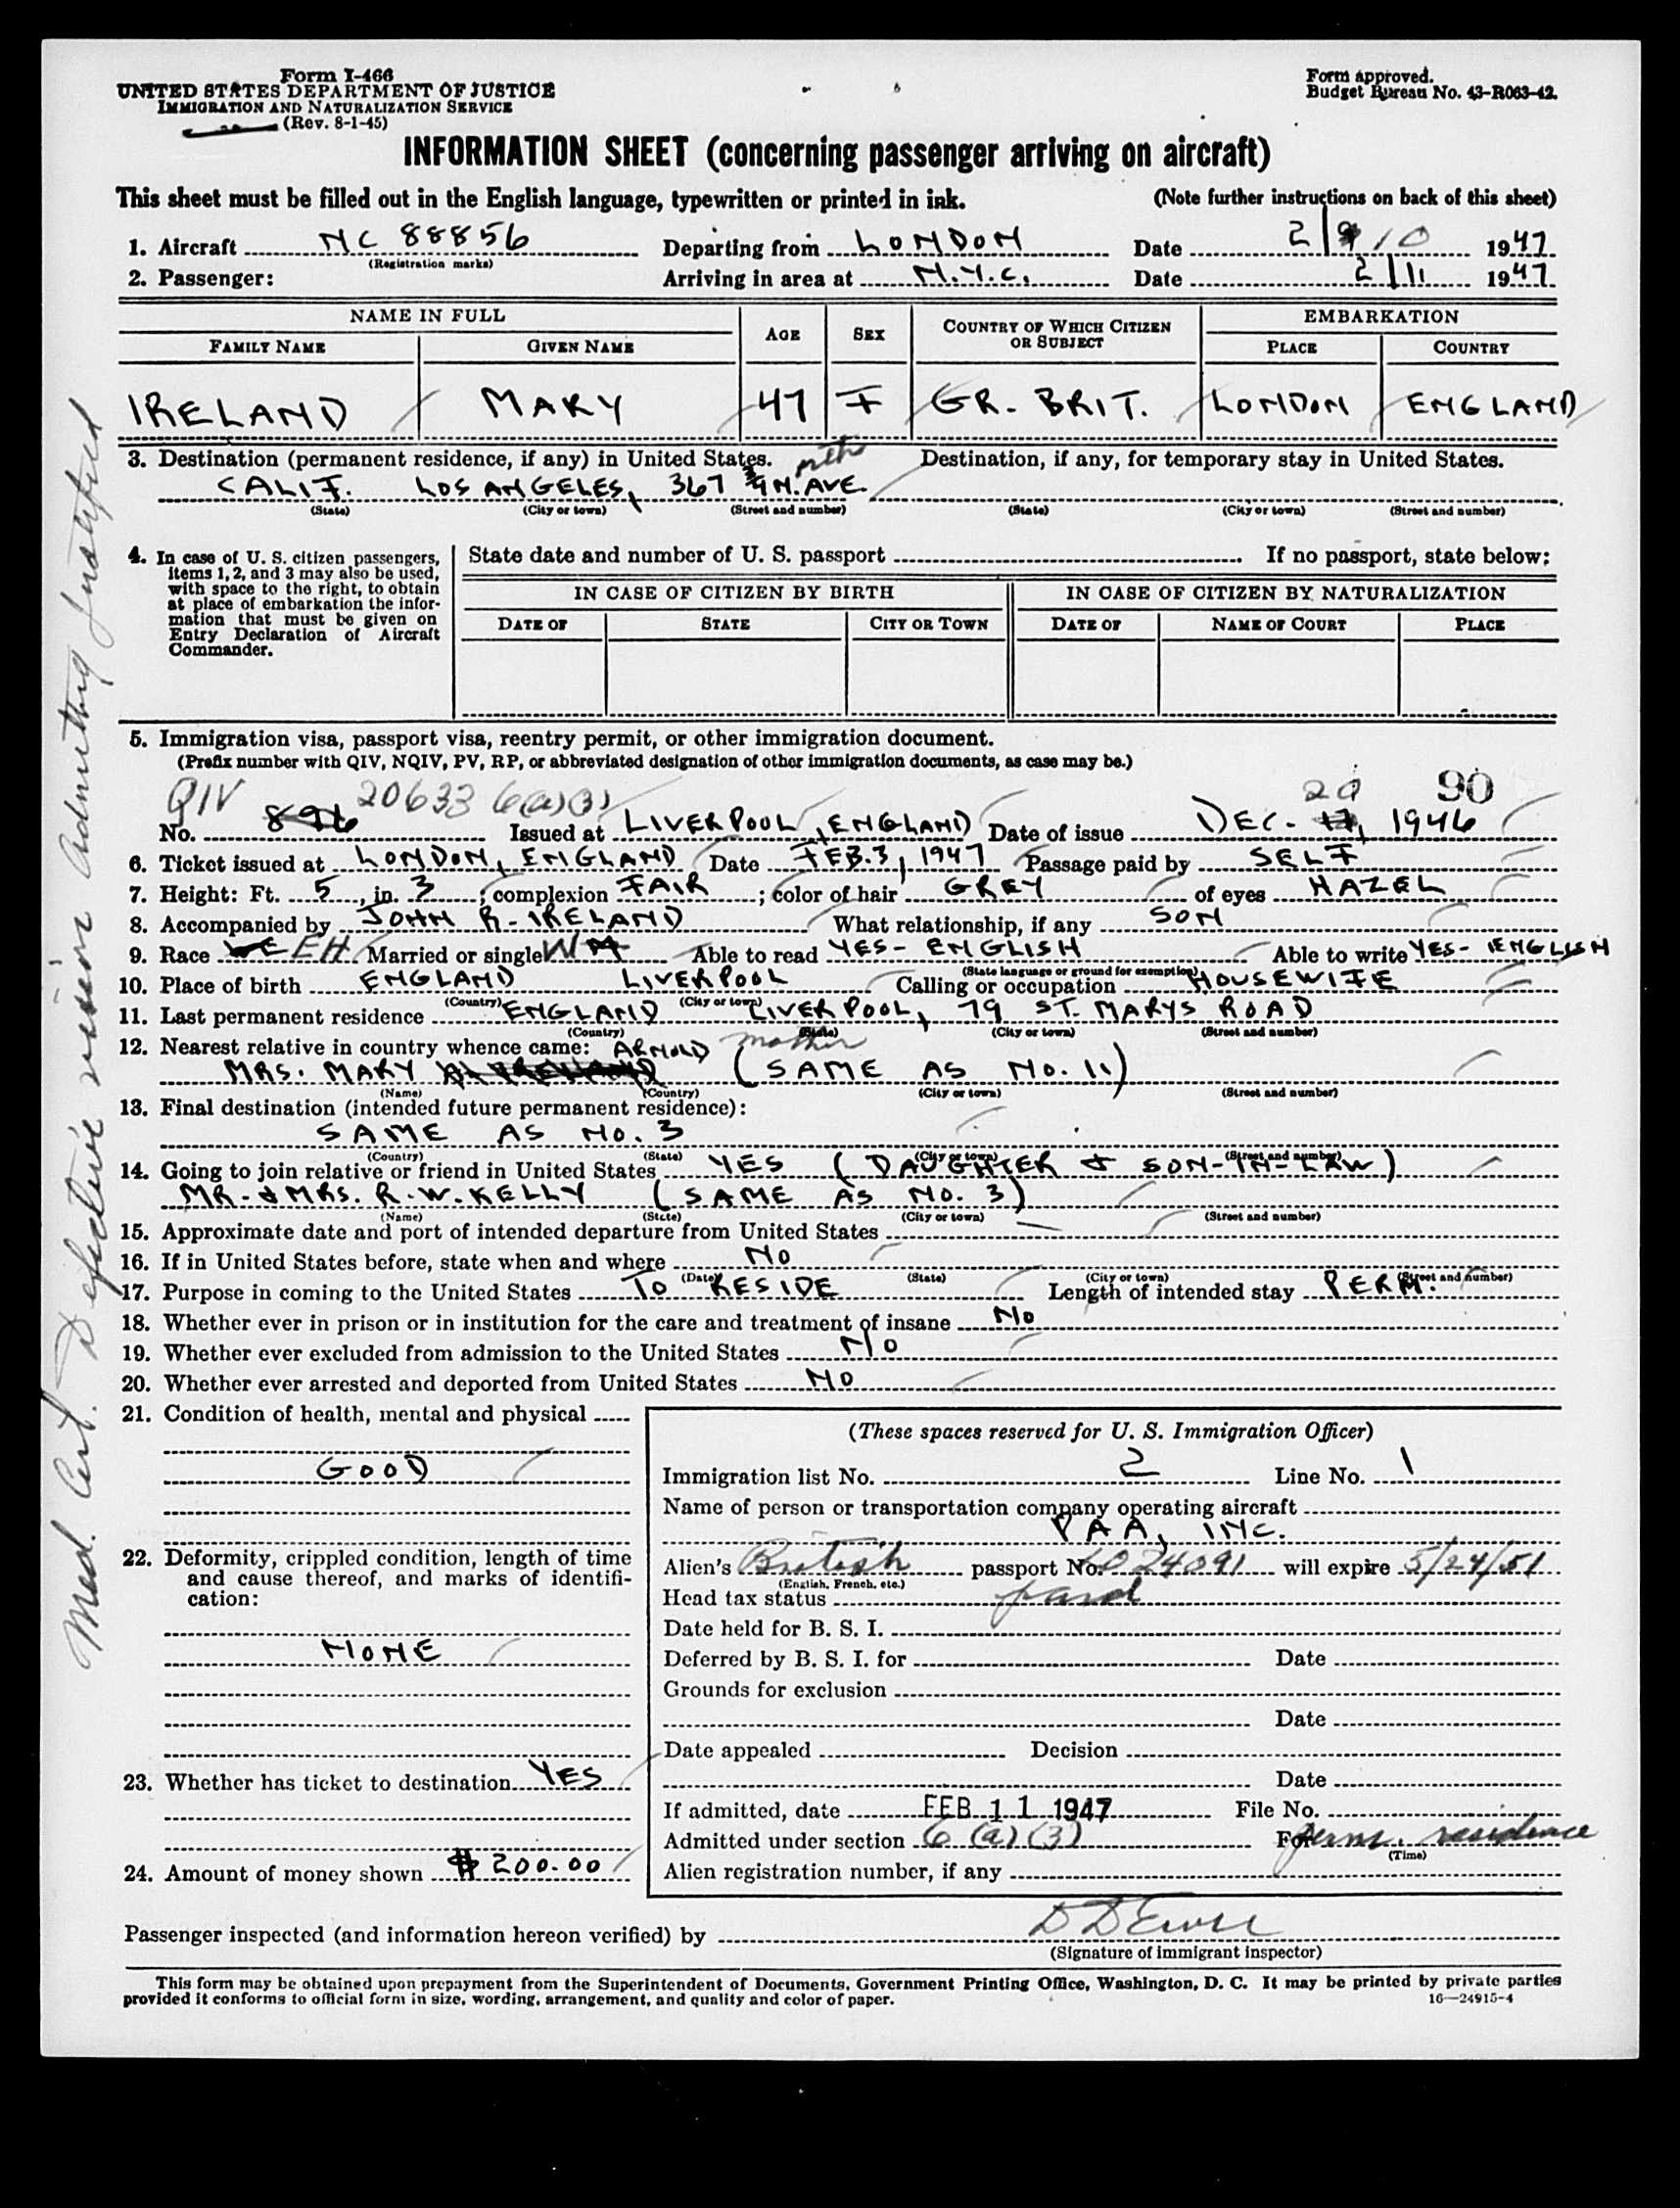 Form I-466
UNITED STATES DEPARTMENT OF JUSTICE
IMMIGRATION AND NATURALIZATION SERVICE
(Rev. 8-1-45)
Form approved.
Budget Bureau No. 43-R063-42.
INFORMATION SHEET (concerning passenger arriving on aircraft)
This sheet must be filled out in the English language, typewritten or printed in ink. (Note further instructions on back of this sheet)
1. Aircraft NC 88856 Departing from LONDON Date 2/10 1947
(Registration marks)
2. Passenger: Arriving in area at N.Y.C. Date 2/11 1947
NAME IN FULL AGE SEX COUNTRY OF WHICH CITIZEN OR SUBJECT EMBARKATION
FAMILY NAME GIVEN NAME PLACE COUNTRY
IRELAND MARY 47 F GR. BRIT. LONDON ENGLAND
3. Destination (permanent residence, if any) in United States. Destination, if any, for temporary stay in United States.
CALIF. LOS ANGELES, 367 N. AVE.
(State) (City or town) (Street and number) (State) (City or town) (Street and number)
4. In case of U. S. citizen passengers, items 1, 2, and 3 may also be used, with space to the right, to obtain at place of embarkation the information that must be given on Entry Declaration of Aircraft Commander.
State date and number of U. S. passport If no passport, state below:
IN CASE OF CITIZEN BY BIRTH IN CASE OF CITIZEN BY NATURALIZATION
DATE OF STATE CITY OR TOWN DATE OF NAME OF COURT PLACE
5. Immigration visa, passport visa, reentry permit, or other immigration document.
(Prefix number with QIV, NQIV, PV, RP, or abbreviated designation of other immigration documents, as case may be.)
QIV 20633 6(a)(3) 20 90
No. 896 Issued at LIVERPOOL, ENGLAND Date of issue DEC. 17, 1946
6. Ticket issued at LONDON, ENGLAND Date FEB. 3, 1947 Passage paid by SELF
7. Height: Ft. 5, in. 3; complexion FAIR; color of hair GREY of eyes HAZEL
8. Accompanied by JOHN R. IRELAND What relationship, if any SON
9. Race EH Married or single W M Able to read YES - ENGLISH Able to write YES - ENGLISH
(State language or ground for exemption)
10. Place of birth ENGLAND LIVERPOOL Calling or occupation HOUSEWIFE
(Country) (City or town)
11. Last permanent residence ENGLAND LIVERPOOL, 79 ST. MARYS ROAD
(Country) (State) (City or town) (Street and number)
12. Nearest relative in country whence came: ARNOLD mother
MRS. MARY (SAME AS No. 11)
(Name) (Country) (City or town) (Street and number)
13. Final destination (intended future permanent residence):
SAME AS No. 3
(Country) (State) (City or town) (Street and number)
14. Going to join relative or friend in United States YES (DAUGHTER & SON-IN-LAW)
MR. & MRS. R. W. KELLY (SAME AS NO. 3)
(Name) (State) (City or town) (Street and number)
15. Approximate date and port of intended departure from United States —
16. If in United States before, state when and where No
(Date) (State) (City or town) (Street and number)
17. Purpose in coming to the United States TO RESIDE Length of intended stay PERM.
18. Whether ever in prison or in institution for the care and treatment of insane No
19. Whether ever excluded from admission to the United States No
20. Whether ever arrested and deported from United States No
21. Condition of health, mental and physical
GOOD
22. Deformity, crippled condition, length of time and cause thereof, and marks of identification:
NONE
23. Whether has ticket to destination YES
24. Amount of money shown $200.00
(These spaces reserved for U. S. Immigration Officer)
Immigration list No. 2 Line No. 1
Name of person or transportation company operating aircraft
PAA, INC.
Alien's British passport No. 6024091 will expire 5/24/51
(English, French, etc.)
Head tax status paid
Date held for B. S. I.
Deferred by B. S. I. for Date
Grounds for exclusion
Date
Date appealed Decision
Date
If admitted, date FEB 11 1947 File No.
Admitted under section 6 (a) (3) For perm. residence
(Time)
Alien registration number, if any
Passenger inspected (and information hereon verified) by
(Signature of immigrant inspector)
This form may be obtained upon prepayment from the Superintendent of Documents, Government Printing Office, Washington, D. C. It may be printed by private parties
provided it conforms to official form in size, wording, arrangement, and quality and color of paper. 16—24915-4
Med. Cert. Defective vision admitting justified